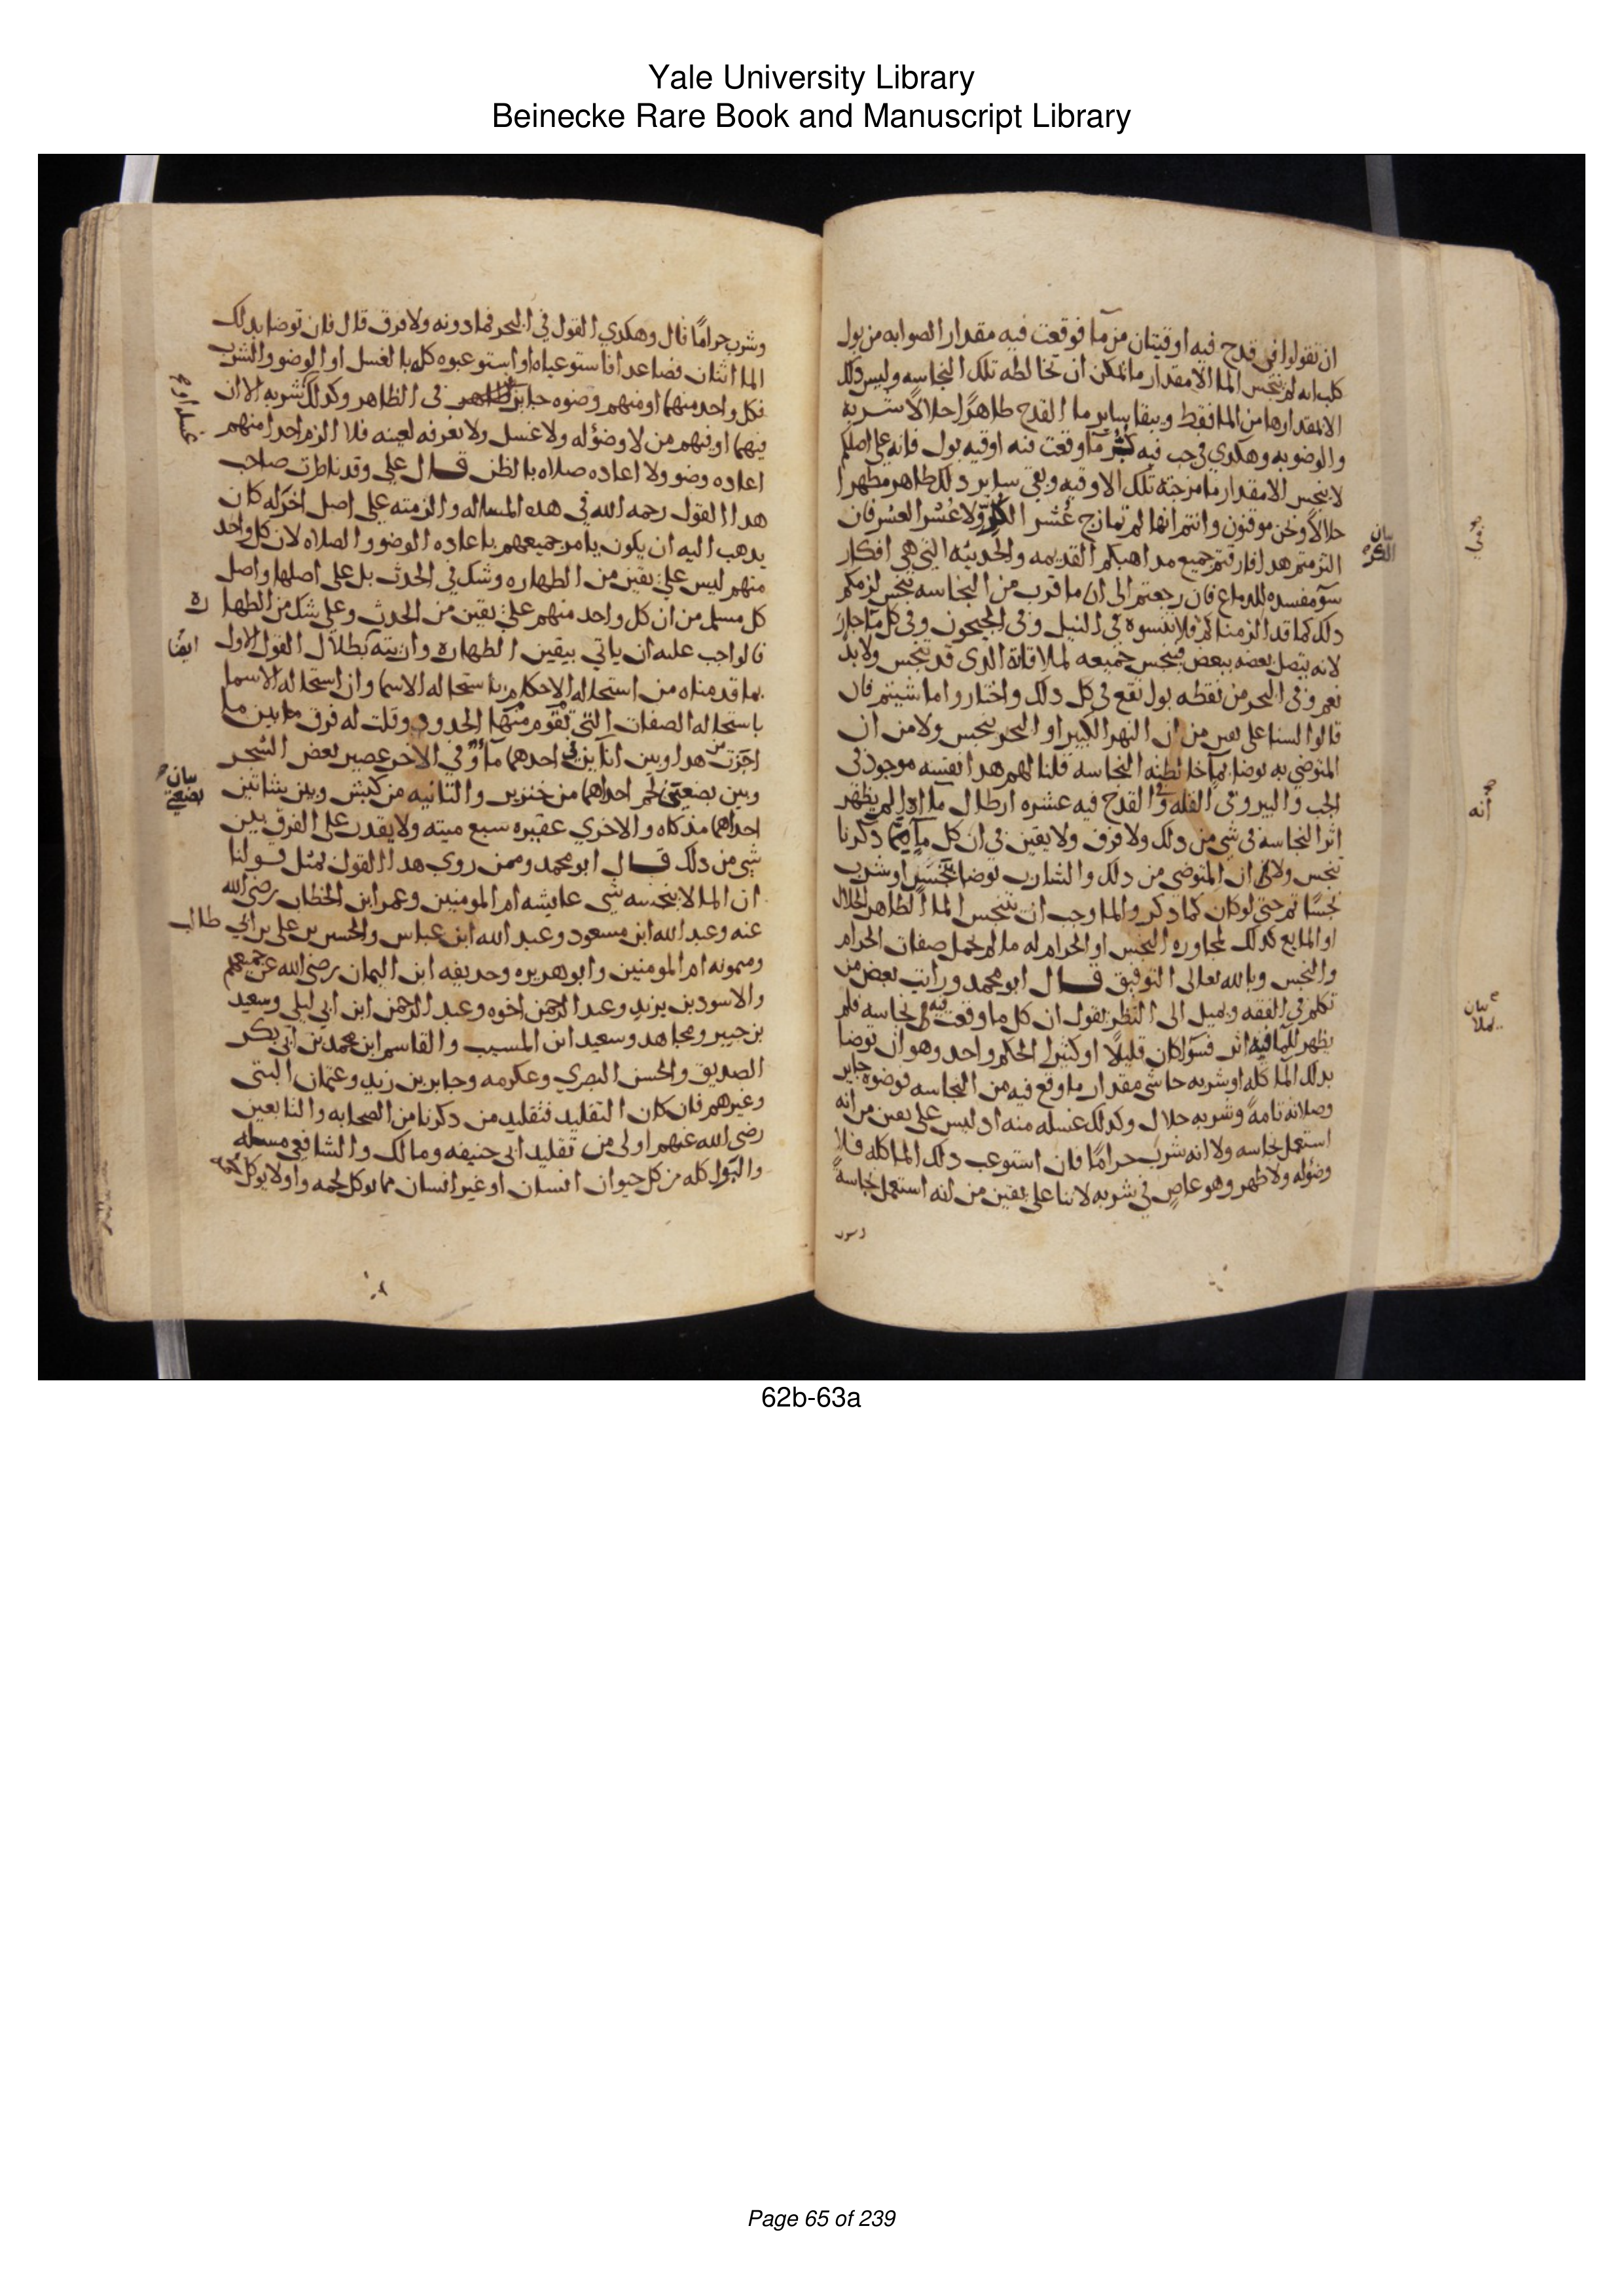 Yale University Library
Beinecke Rare Book and Manuscript Library
ان تقولوا في قدح فيه اوقيتان من ما فوقعت فيه مقدار الصوابه من بول
كلب انه لم ينجس الما الا مقدار ما يمكن ان تخالطه تلك النجاسه وليس ذلك
الا مقدارها من الما فقط ويبقا ساير ما القدح طاهرا حلالا شربه
والوضو به وهكدي في جب فيه ما وقعت فيه اوقيه بول فانه على اصلكم
لا ينجس الا مقدار ما مزجته تلك الاوقيه وبقي ساير دلك طاهر مطهرا
حلالا ونحن موقنون وانتم انها لم تمازج عشر الكر ولا عشر العشر فان
التزمتم هدا فارقتم جميع مداهبكم القديمه والحديثه التي هي افكار
سو مفسده للدماغ فان رجعتم الى ان ما قرب من النجاسه ينجس لزمكم
دلك كما قد الزمناكم فلا تنسوه في النيل وفي الجيحون وفي كل ما جار
لانه يتصل بعضه ببعض فينجس جميعه لملاقاة الدى قد تنجس ولا بد
نعم وفي البحر من نقطه بول تقع في كل دلك واختاروا ما شيتم فان
قالوا لسنا على يقين من ان النهر الكبير او البحر ينجس ولا من ان
المتوضي به توضا بما خالطته النجاسه قلنا لهم هدا نفسه موجود في
الجب والبير وفى القله وفي القدح فيه عشره ارطال ما ادا لم يظهر
اثر النجاسه في شي من دلك ولا فرق ولا يقين في ان كل ما مما دكرنا
تنجس ولا في ان المتوضي من دلك والشارب توضا بنجس او شرب
نجسا ثم حتى لو كان كما دكروا لما وجب ان يتنجس الما الطاهر الحلال
او المايع كدلك لمجاوره النجس او الحرام له ما لم يحمل صفات الحرام
والنجس وبالله تعالى التوفيق قال ابو محمد ورايت بعض من
تكلم في الفقه ويميل الى النظر يقول ان كل ما وقعت فيه نجاسه فلم
يظهر للما فيه اثر فسوا كان قليلا او كثيرا الحكم واحد وهو ان توضا
بدلك الما كله او شربه حاشى مقدار ما وقع فيه من النجاسه فوضوه جايز
وصلاته تامة وشربه حلال وكدلك غسله منه اد ليس على يقين من انه
استعمل نجاسه ولا انه شرب حراما فان استوعب دلك الما كله فلا
وضو له ولا طهر وهو عاص في شربه لاننا على يقين من انه استعمل نجاسة
وسرب
بيان
الكر
انه
بيان
وشرب حراما قال وهكدي القول في البحر فما دونه ولا فرق قال فان توضا بدلك
الما اثنان فصاعدا فاستوعباه او استوعبوه كله بالغسل او الوضو والشرب
فكل واحد منهما او منهم وضوه جايز في الظاهر وكدلك شربه الا ان
فيهما او فيهم من لا وضؤ له ولا غسل ولا نعرفه لعينه فلا الزم احدا منهم
اعاده وضو ولا اعاده صلاه بالظن قال علي وقد ناظرت صاحب
هدا القول رحمه الله في هده المساله والزمته على اصل اخر له كان
يدهب اليه ان يكون يامر جميعهم باعاده الوضو والصلاه لان كل واحد
منهم ليس على يقين من الطهاره وشك في الحدث بل على اصلها واصل
كل مسلم من ان كل واحد منهم على يقين من الحدث وعلى شك من الطهاره
فالواجب عليه ان ياتي بيقين الطهاره واريته بطلال القول الاول
بما قدمناه من استحاله الاحكام باستحاله الاسما وان استحاله الاسما
باستحاله الصفات التي تقوم منها الحدود وقلت له فرق ما بين ما
اجزت من هدا وبين انآين في احدهما ما وفي الاخر عصير بعض الشجر
وبين بضعتي لحم احداهما من خنزير والثانيه من كبش وبين شاتين
احداهما مدكاه والاخري عقيره سبع ميته ولا يقدر على الفرق بين
شي من دلك قال ابو محمد وممن روي هدا القول بمثل قولنا
ان الما لا ينجسه شي عايشه ام المومنين وعمر ابن الخطاب رضى الله
عنه وعبد الله ابن مسعود وعبد الله ابن عباس والحسن بن علي بن ابي طالب
وميمونه ام المومنين وابو هريره وحديفه ابن اليمان رضى الله عن جميعهم
والاسود بن يزيد وعبد الرحمن اخوه وعبد الرحمن ابن ابي ليلى وسعيد
بن جبير ومجاهد وسعيد ابن المسيب والقاسم ابن محمد بن ابي بكر
الصديق والحسن البصري وعكرمه وجابر بن زيد وعثمان البتي
وغيرهم فان كان التقليد فتقليد من دكرنا من الصحابه والتابعين
رضى الله عنهم اولى من تقليد ابي حنيفه ومالك والشافعي مسله
والبول كله من كل حيوان انسان او غير انسان مما يوكل لحمه واو لا يوكل
ايضا
بيان
بضعتي
62b-63a
Page 65 of 239